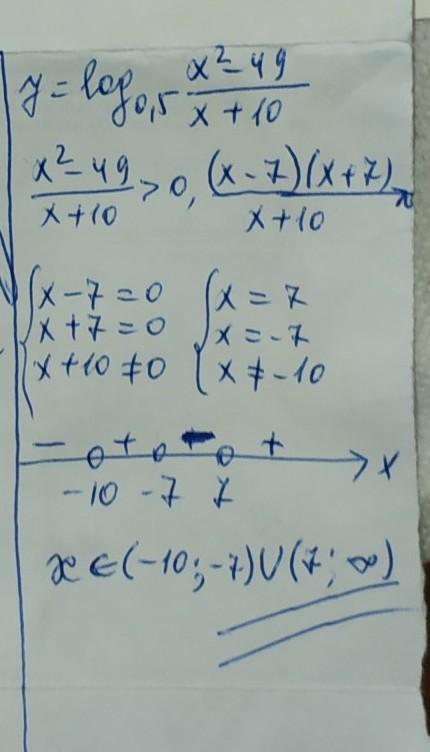 y = log₀,₅ (x² − 49)/(x + 10)
(x² − 49)/(x + 10) > 0, (x − 7)(x + 7)/(x + 10)
{x − 7 = 0 {x = 7
x + 7 = 0 x = −7
x + 10 ≠ 0 x ≠ −10
− + − + x
−10 −7 7
x ∈ (−10; −7) ∪ (7; ∞)